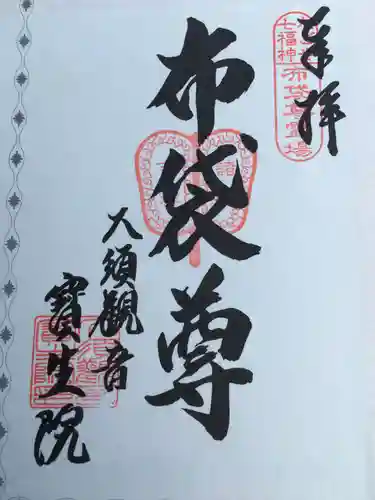 奉拝
布袋尊
大須観音
寶生院
七福神
布袋尊霊場